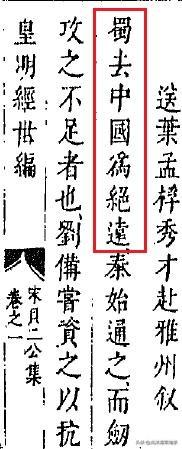 送葉孟桴秀才赴雅州叙
蜀去中國爲絕遠秦始通之而劔
攻之不足者也劉備嘗資之以抗
皇明經世編
宋貝二公集
卷之一